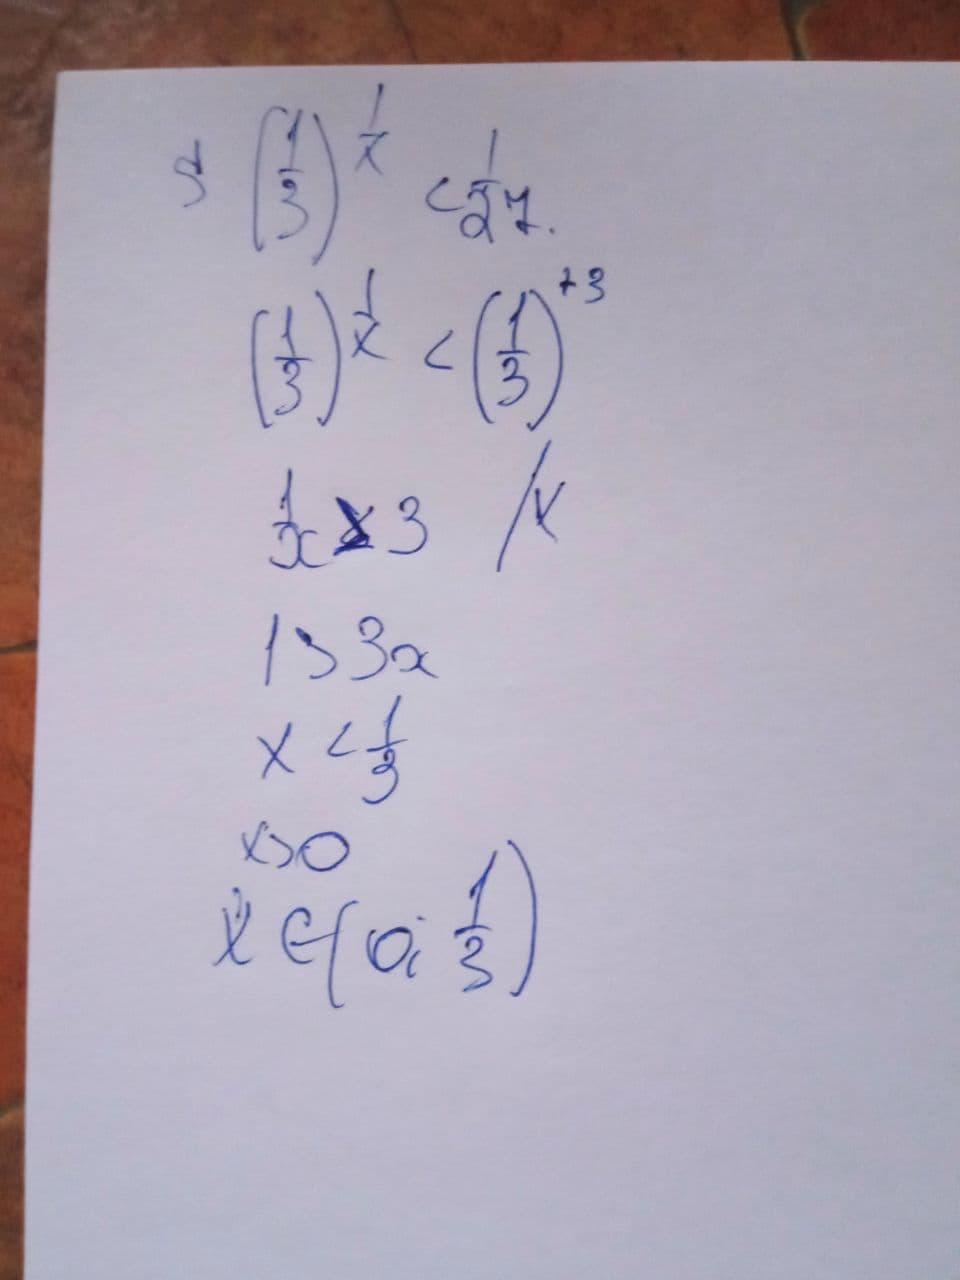 5 (1/3)^(1/x) < 1/27.
(1/3)^(1/x) < (1/3)^(+3)
1/x > 3 /x
1 > 3x
x < 1/3
x > 0
x ∈ (0; 1/3)